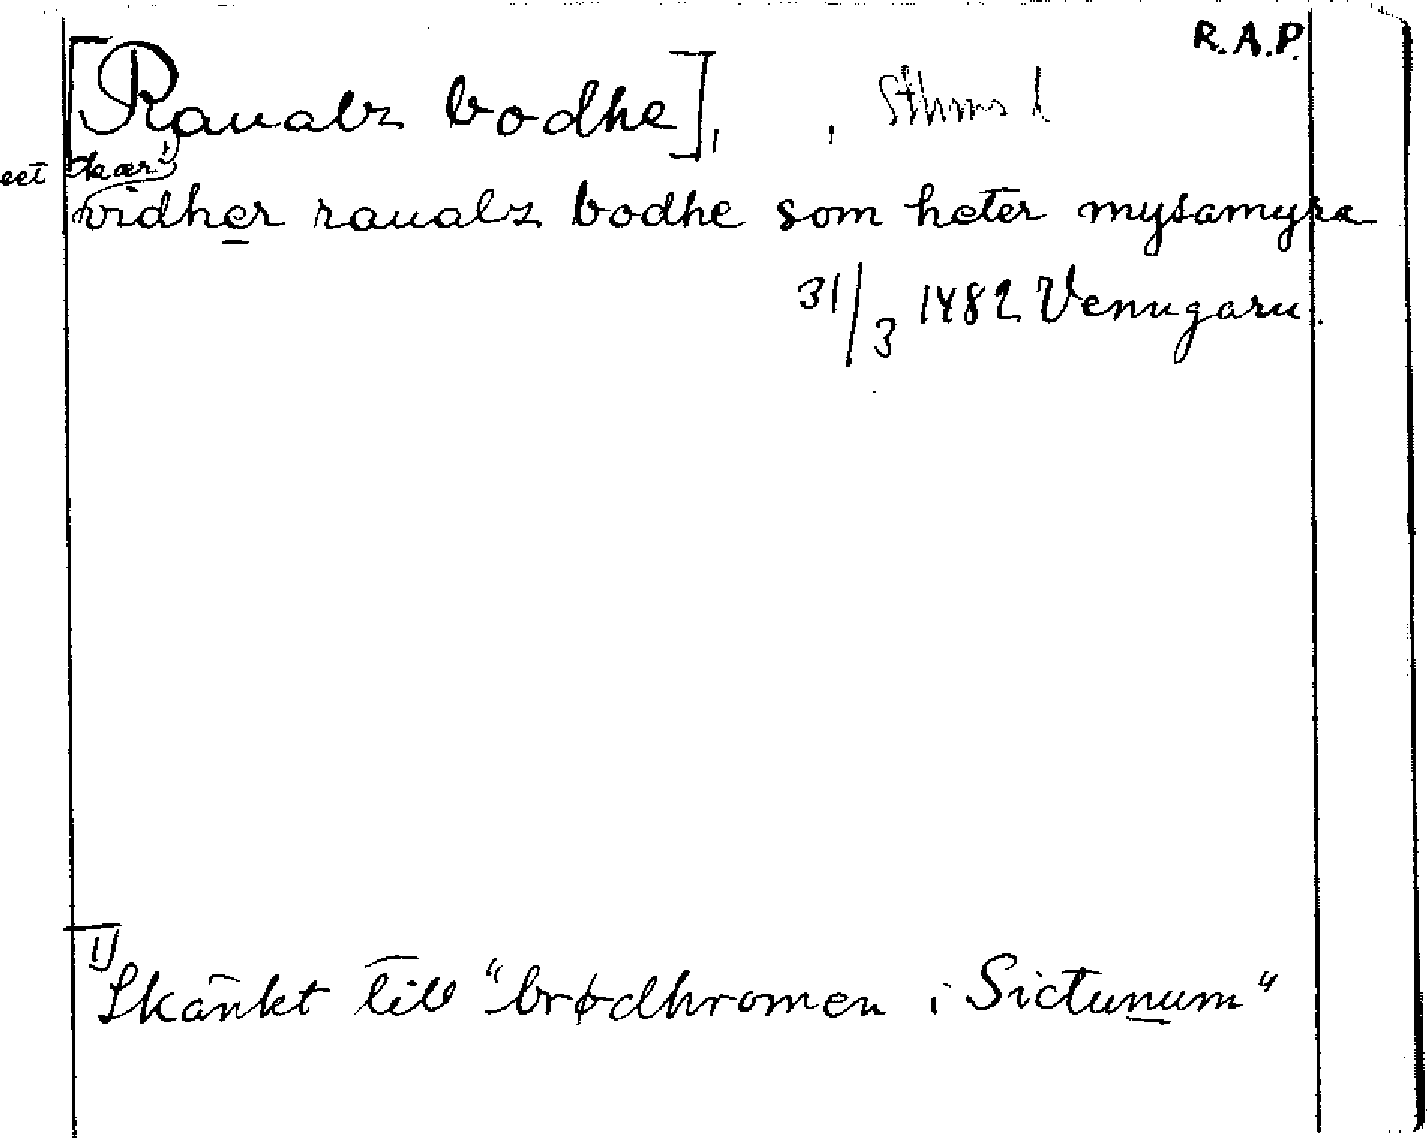 R.A.P.
[Raualz bodhe], , Sthms l
eet skær 1)
vidher raualz bodhe som heter mysamyra
31/3 1482 Venugarn.
1) Skänkt till "brødhromen i Sictunum"